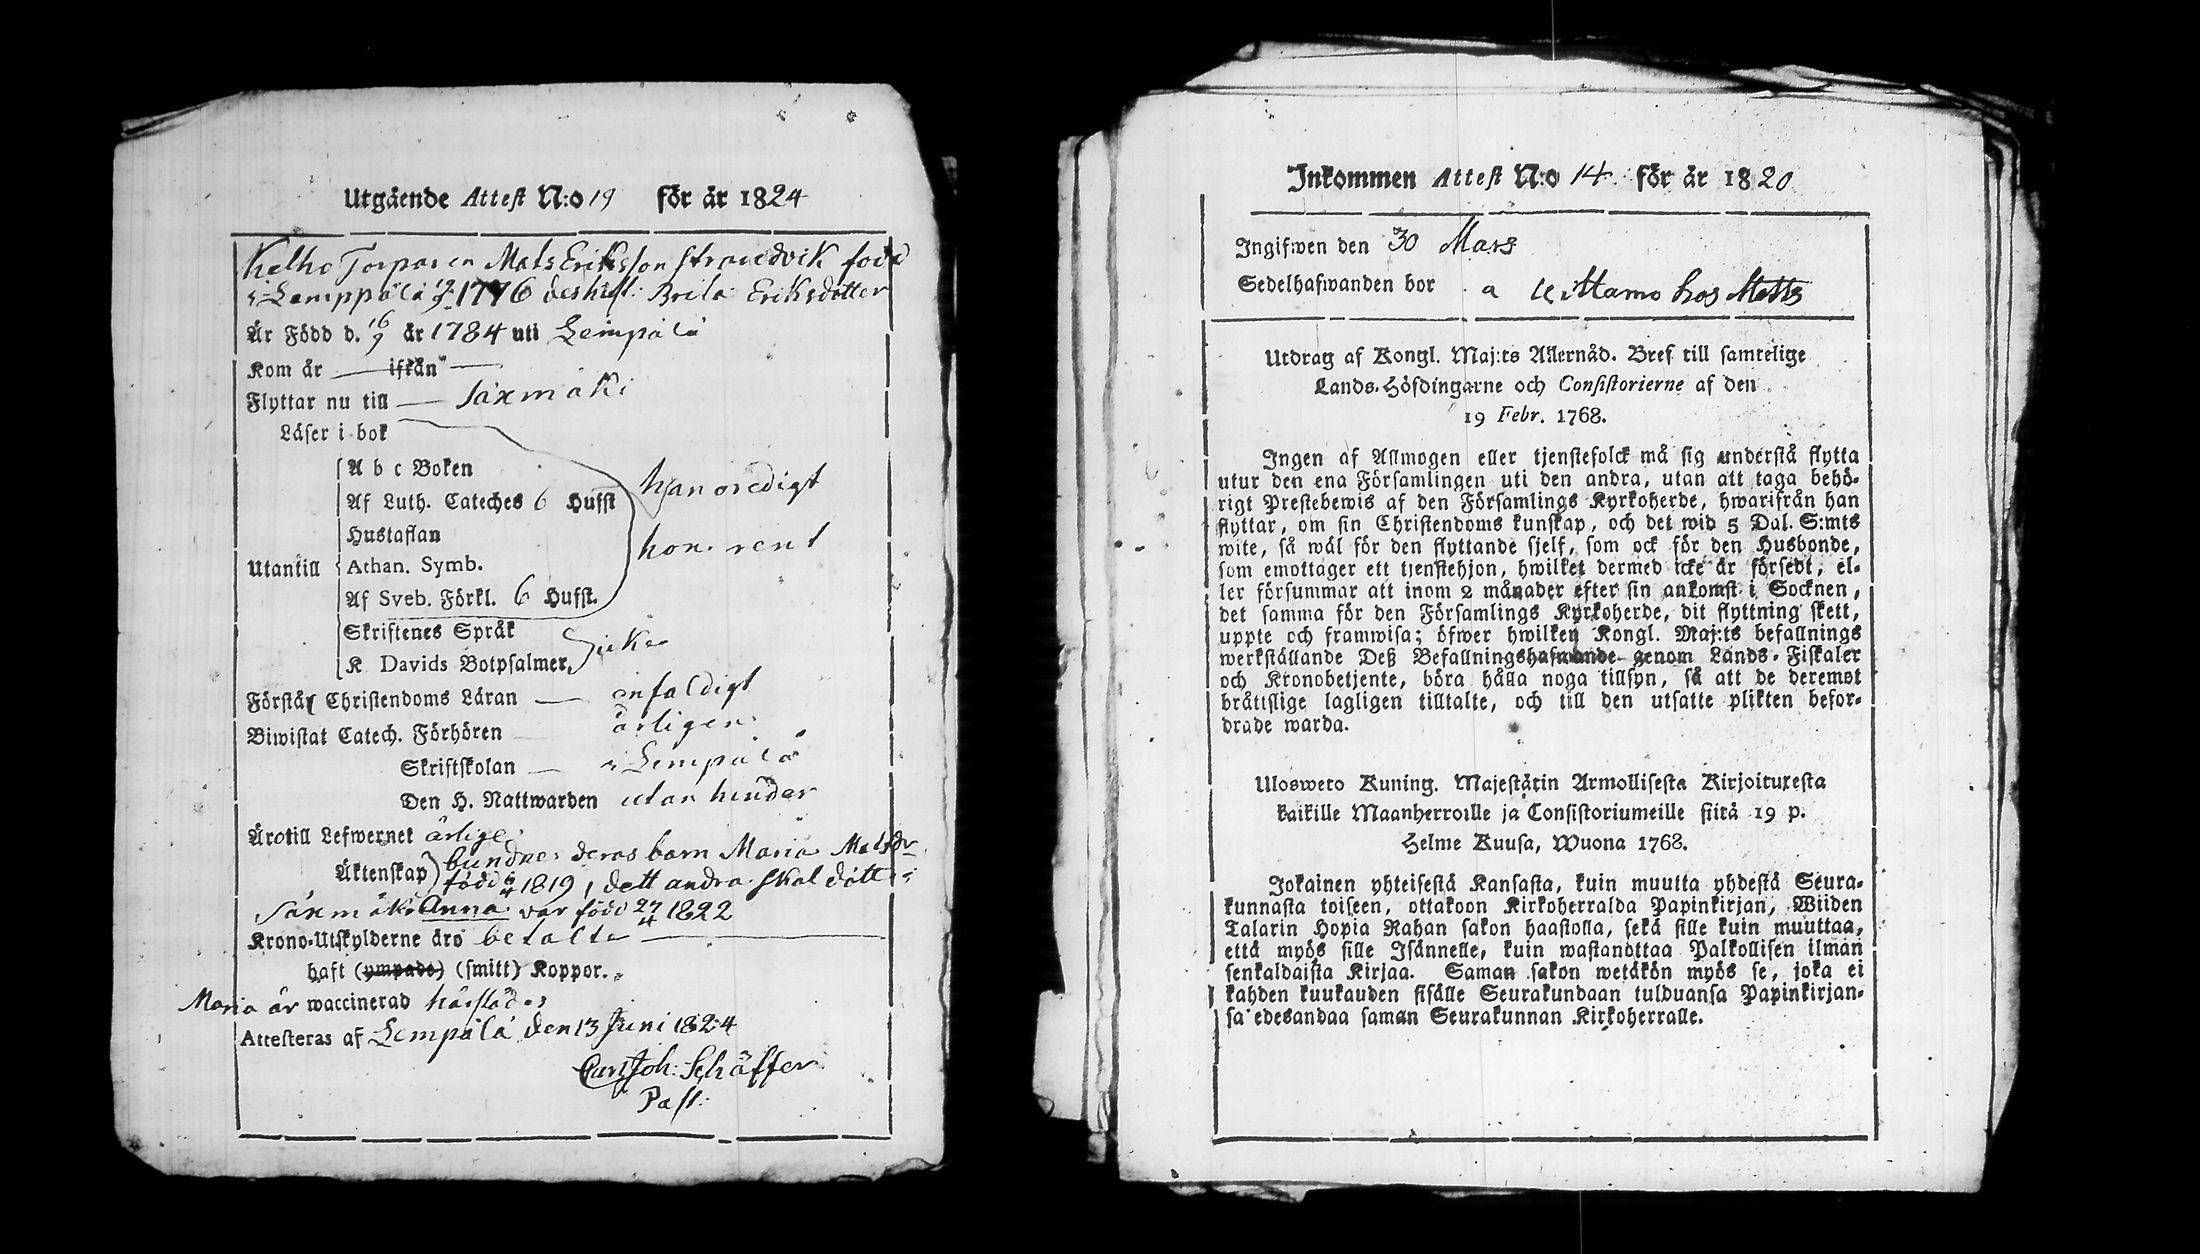 Utgående Attest N:o 19 för år 1824
Kelho Torparen Mats Eriksson Strandvik född
i Lemppälä 1776 des hust: Brita Eriksdotter
Är Född d. 16/9 år 1784 uti Lempälä
Kom år — ifrån —
Flyttar nu till — Säxmäki
Läser i bok
A b c Boken
Af Luth. Cateches 6 Hufst
han oredigt
Hustaflan
hon rent
Utantill
Athan. Symb.
Af Sveb. Förkl. 6 Hufst.
Skriftenes Språk
K Davids Botpsalmer, icke
Förstår Christendoms Läran — enfaldigt
Biwistat Catech. Förhören årligen
Skriftskolan — i Lempälä
Den H. Nattwarden utan hinder
Äro till Lefwernet ärlige
Äktenskap) bundne: deras barn Maria Matsdr
född 1819, dett andra skal dött i
Säxmäki Anna var född 27/4 1822
Krono-Utskylderne äro betalte —
haft (ympade) (smitt) Koppor.
Maria är waccinerad härstädes
Attesteras af Lempälä den 13 Juni 1824
Carl Joh: Schäffer
Past:
Inkommen Attest N:o 14 för år 1820
Ingifwen den 30 Mars
Sedelhafwanden bor a Uittamo hos Matts
Utdrag af Kongl. Maj:ts Allernåd. Bref till samtelige
Lands-Höfdingarne och Consistorierne af den
19 Febr. 1768.
Ingen af Allmogen eller tjenstefolck må sig understå flytta
utur den ena Församlingen uti den andra, utan att taga behö-
rigt Prestebewis af den Församlings Kyrkoherde, hwarifrån han
flyttar, om sin Christendoms kunskap, och det wid 5 Dal. S:mts
wite, så wäl för den flyttande sjelf, som ock för den Husbonde,
som emottager ett tjenstehjon, hwilket dermed icke är försedt, el-
ler försummar att inom 2 månader efter sin ankomst i Socknen,
det samma för den Församlings Kyrkoherde, dit flyttning skett,
uppte och framwisa; öfwer hwilken Kongl. Maj:ts befallnings
werkställande Deß Befallningshafwande genom Lands-Fiskaler
och Kronobetjente, böra hålla noga tillsyn, så att de deremot
bråttslige lagligen tilltalte, och till den utsatte plikten befor-
drade warda.
Ulosweto Kuning. Majestätin Armollisesta Kirjoituxesta
kaikille Maanherroille ja Consistoriumeille siitä 19 p.
Helme Kuusa, Wuona 1768.
Jokainen yhteisestä Kansasta, kuin muutta yhdestä Seura-
kunnasta toiseen, ottakoon Kirkoherralda Papinkirjan, Wiiden
Talarin Hopia Rahan sakon haastolla, sekä sille kuin muuttaa,
että myös sille Isännelle, kuin wastanottaa Palkollisen ilman
senkaldaista Kirjaa. Saman sakon wetäkön myös se, joka ei
kahden kuukauden sisälle Seurakundaan tulduansa Papinkirjan-
sa edesandaa saman Seurakunnan Kirkoherralle.